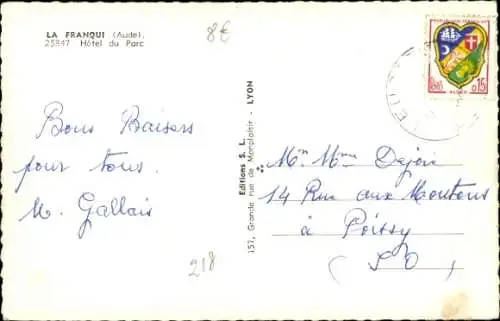 LA FRANQUI (Aude).
25847 Hôtel du Parc
8€
Bons Baisers
pour tous.
M. Gallais
218
Editions S. L.
157, Grande rue de Monplaisir - LYON
REPUBLIQUE FRANÇAISE
0,15
ALGER
Mr Mme Dejoie
14 Rue aux Moutons
à Poissy
(S O)